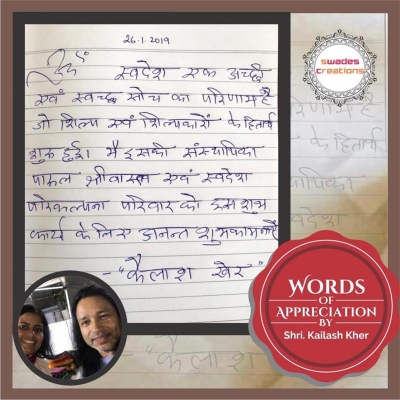 26.1.2019
swades
creations
स्वदेश एक अच्छी
एवं स्वच्छ सोच का परिणाम है
जो शिल्प एवं शिल्पकारों के हितार्थ
शुरू हुई। मैं इसकी संस्थापिका
पारुल श्रीवास्तव एवं स्वदेश
परिकल्पना परिवार को इस शुभ
कार्य के लिए अनन्त शुभकामनाएँ
- "कैलाश खेर"
WORDS
OF
APPRECIATION
BY
Shri. Kailash Kher